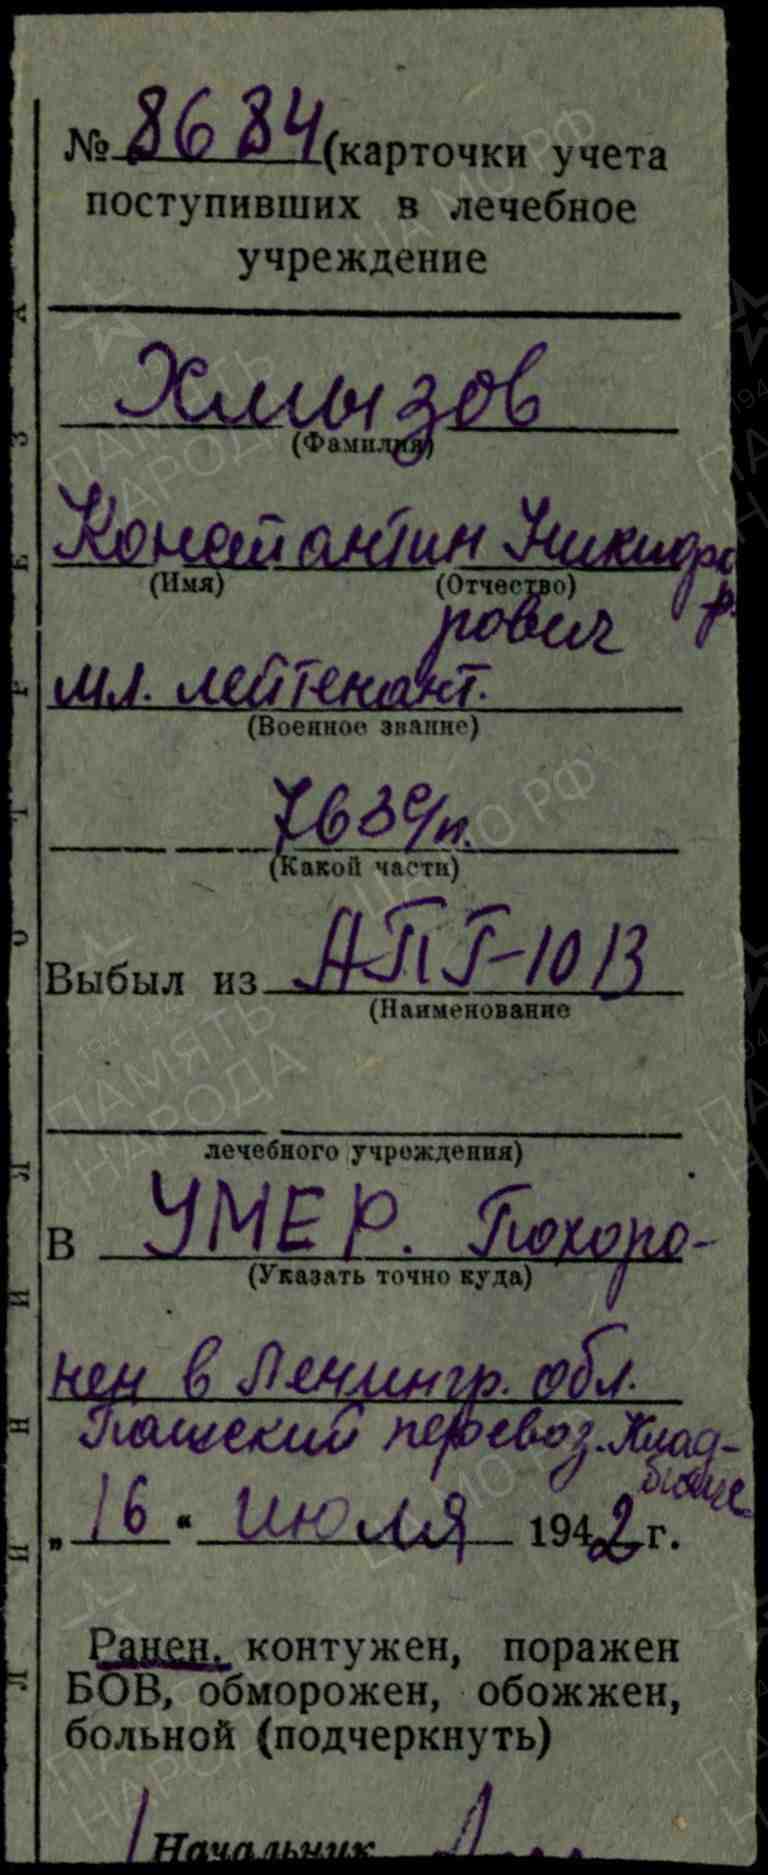 № 8684 (карточки учета
поступивших в лечебное
учреждение
Хмызов
(Фамилия)
Константин Никифо
(Имя) (Отчество)
р.
рович
мл. лейтенант.
(Военное звание)
763 с/п.
(Какой части)
Выбыл из АППГ-1013
(Наименование
лечебного учреждения)
в УМЕР. Похоро-
(Указать точно куда)
нен в Ленингр. обл.
Пашский перевоз. Клад-
бище
„ 16 “ июля 1942 г.
Ранен, контужен, поражен
БОВ, обморожен, обожжен,
больной (подчеркнуть)
Начальник
ЛИНИЯ ОТРЕЗА
ПАМЯТЬ
НАРОДА
ЦА МО РФ